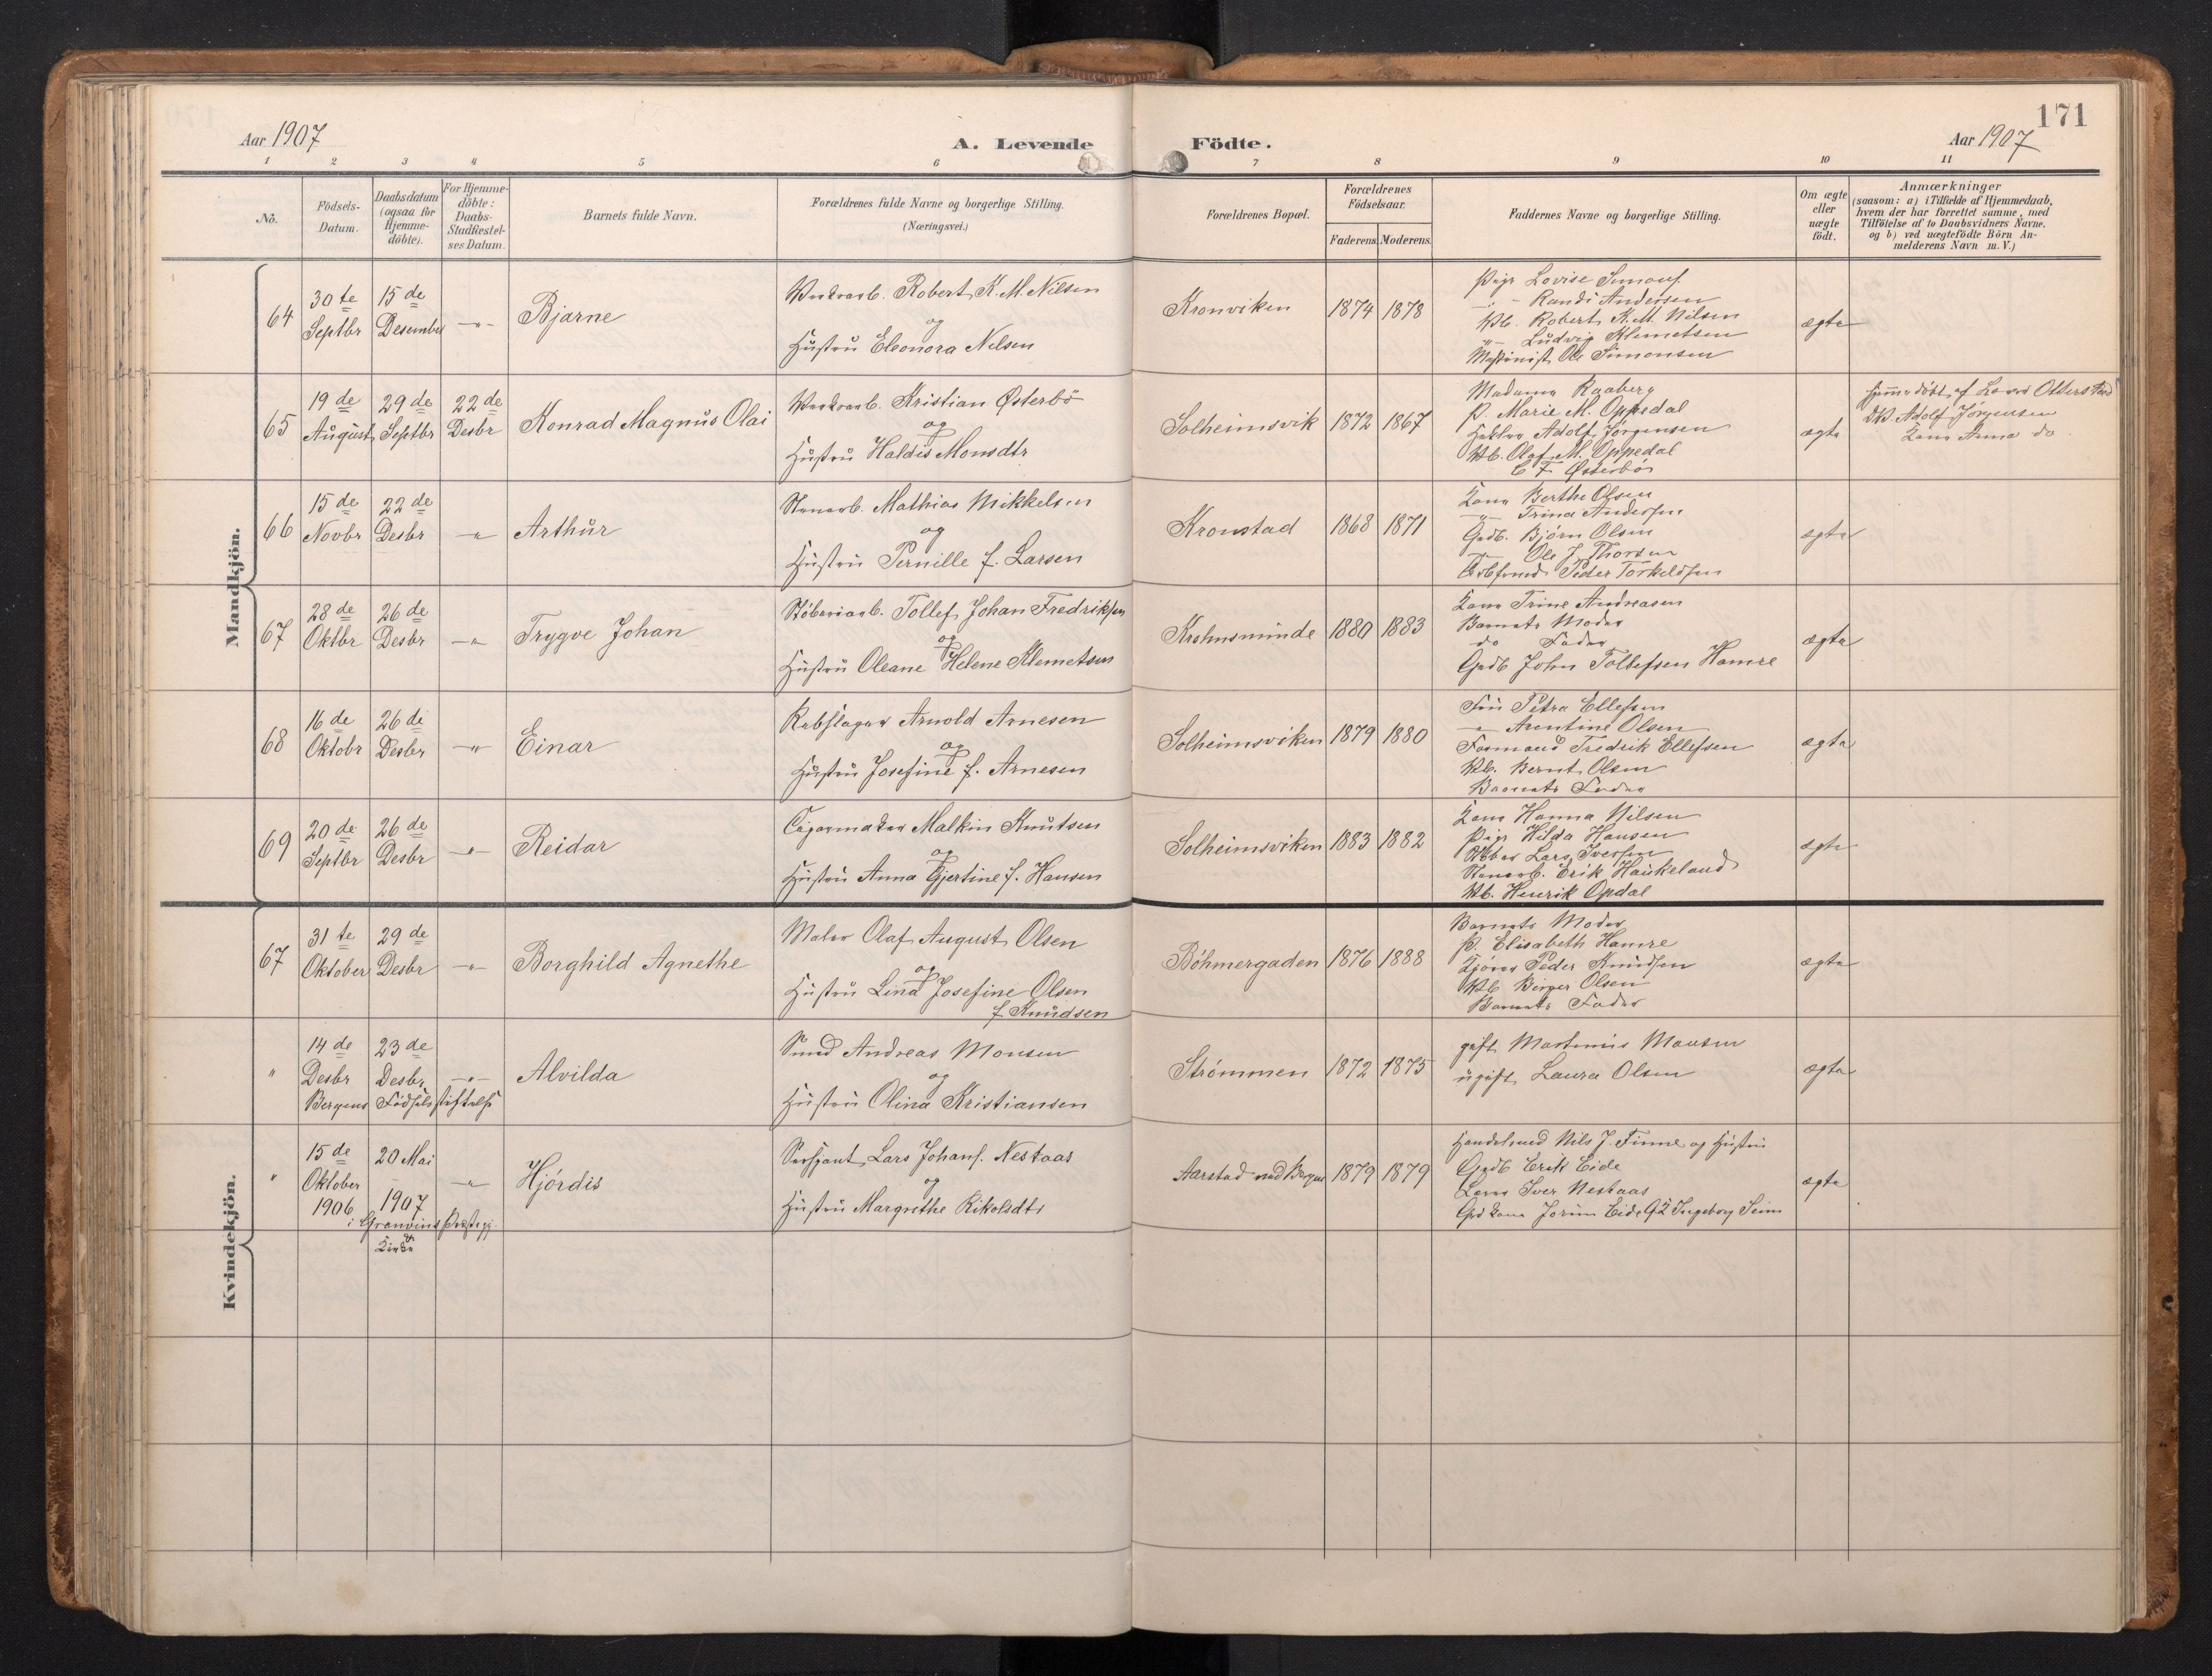 171
Aar 1907
A. Levende
Födte.
Aar 1907
1 2 3 4 5 6 7 8 9 10 11
No.
Födsels-Datum.
Daabsdatum (ogsaa for Hjemme-döbte).
For Hjemme-döbte: Daabs-Stadfæstel-ses Datum.
Barnets fulde Navn.
Forældrenes fulde Navne og borgerlige Stilling.
(Næringsvei.)
Forældrenes Bopæl.
Forældrenes Födselsaar.
Faderens. Moderens.
Faddernes Navne og borgerlige Stilling.
Om ægte eller uægte födt.
Anmærkninger
(saasom: a) i Tilfælde af Hjemmedaab,
hvem der har forrettet samme, med
Tilföielse af to Daabsvidners Navne,
og b) ved uægtefödte Börn An-
melderens Navn m. V.)
Mandkjön.
64
30 te Septbr
15 de Desember
-"-
Bjarne
Robert K. M. Nilsen
og
Hustru Eleonora Nilsen
Kronviken
1874 1878
Pige Lovise
-"- Randi Andersen
Robert K. M. Nilsen
-"- Ludvig Klemetsen
Maskinist Ole Simonsen
ægte
65
19 de August
29 de Septbr
22 de Desbr
Konrad Magnus Olai
Kristian Østerbö
og
Hustru Haldis Monsdtr
Solheimsvik
1872 1867
Madame Raaberg
P. Marie M. Oppedal
Adolf Jörgensen
Olaf M. Oppedal
Østerbö
ægte
Hjemmedöbt af
Adolf Jörgensen
Kone Anna do
66
15 de Novbr
22 de Desbr
-"-
Arthur
Mathias Mikkelsen
og
Hustru Pernille f. Larsen
Kronstad
1868 1871
Kone Berthe Olsen
-"- Trina Andersen
Grdb. Bjørn Olsen
Ole J. Thorsen
Peder Torkeldsen
ægte
67
28 de Oktbr
26 de Desbr
-"-
Trygve Johan
Støberiarb. Tollef Johan Fredriksen
og
Hustru Oleane Helene Klemetsen
Krohnsminde
1880 1883
Kone Trine Andreasen
Barnets Moder
do Fader
Grdb John Tollefsen Hamre
ægte
68
16 de Oktobr
26 de Desbr
-"-
Einar
Rebslager Arnold Arnesen
og
Hustru Josefine f. Arnesen
Solheimsviken
1879 1880
Fru Petra Ellefsen
-"- Arentine Olsen
Formand Fredrik Ellefsen
Bernt Olsen
Barnets Fader
ægte
69
20 de Septbr
26 de Desbr
-"-
Reidar
Cigarmaker Malkin Knutsen
og
Hustru Anna Gjertine f. Hansen
Solheimsviken
1883 1882
Kone Hanna Nilsen
Pige Hilda Hansen
Lars Iversen
Erik Haukeland
Henrik Opdal
ægte
Kvindekjön.
67
31 te Oktober
29 de Desbr
-"-
Borghild Agnethe
Maler Olaf August Olsen
og
Hustru Lina Josefine Olsen
f. Knudsen
Böhmergaden
1876 1888
Barnets Moder
P. Elisabeth Hamre
Peder Knudsen
Birger Olsen
Barnets Fader
ægte
"
14 de Desbr
23 de Desbr
-"-
Bergens Fødselsstiftelse
Alvilda
Smed Andreas Monsen
og
Hustru Olina Kristiansen
Strømmen
1872 1875
gift Martinius Monsen
ugift Laura Olsen
ægte
"
15 de Oktober 1906
20 Mai 1907
-"-
i Granvins Præstegj. Kirke
Hjördis
Sersjant Lars Johans. Nestaas
og
Hustru Margrethe Rikoldsdtr
Aarstad ved Bergen
1879 1879
Handelsmd Nils J. Finne og Hustru
Grdb Erik Eide
Iver Nestaas
Grd Kone Jorun Eide Ingeborg Seim
ægte